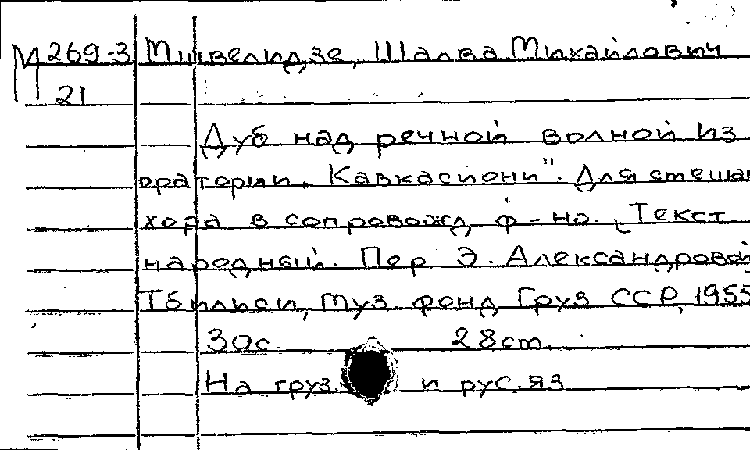 М 269-3 Мшвелидзе, Шалва Михайлович
21
Дуб над речной волной из
оратории „Кавкасиони". Для смешан
хора в сопровожд. ф-но. [Текст
народный. Пер. Э. Александровой
Тбилиси, Муз. фонд Груз ССР, 1955
30с 28cm.
На груз. и рус. яз